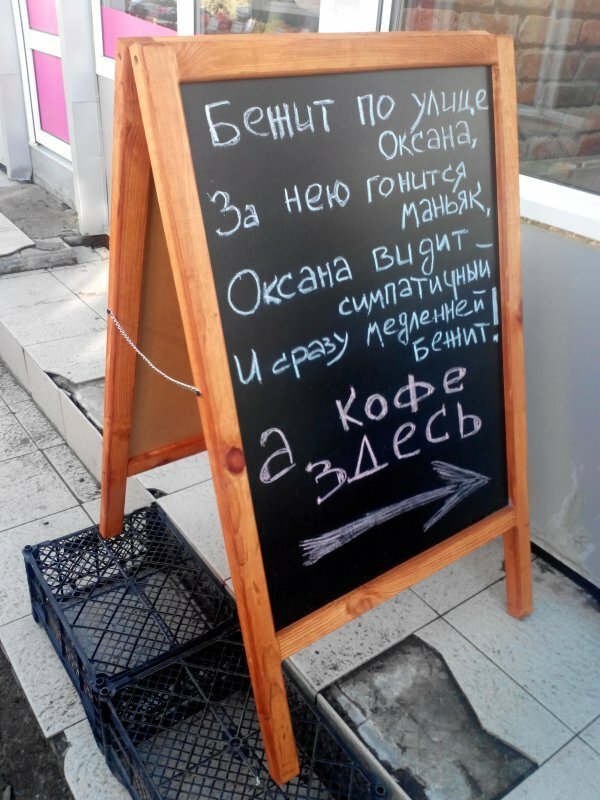 Бежит по улице
Оксана,
За нею гонится
маньяк,
Оксана видит –
симпатичный
И сразу медленней
бежит!
а кофе
здесь